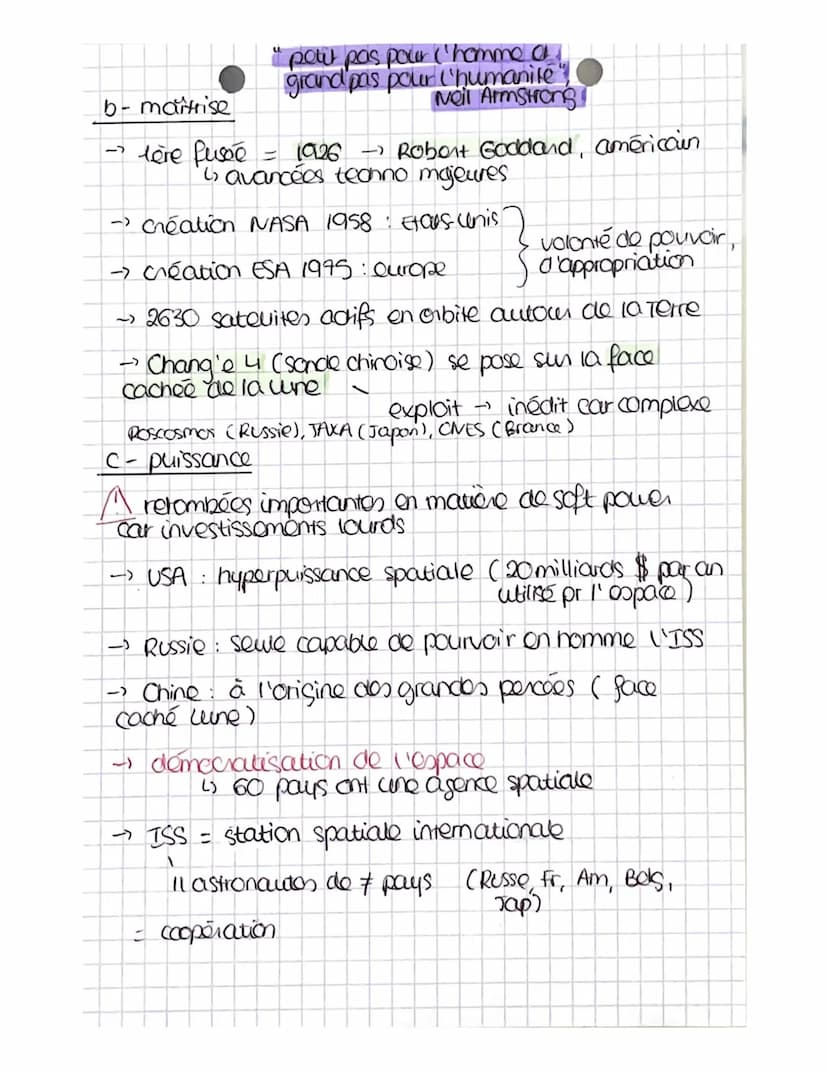 "petit pas pour l'homme et
grand pas pour l'humanité",
Neil Armstrong
b - maîtrise
→ 1ère fusée = 1926 → Robert Goddard, américain
↳ avancées techno majeures
→ création NASA 1958 : Etats-Unis
→ création ESA 1975 : europe
} volonté de pouvoir,
d'appropriation
→ 2630 satellites actifs en orbite autour de la Terre
→ Chang'e 4 (sonde chinoise) se pose sur la face
cachée de la lune
exploit → inédit car complexe
Roscosmos (Russie), JAXA (Japon), CNES (France)
c - puissance
⚠ retombées importantes en matière de soft power
car investissements lourds
→ USA : hyperpuissance spatiale (20 milliards $ par an
utilisé pr l'espace)
→ Russie : seule capable de pourvoir en homme l'ISS
→ Chine : à l'origine des grandes percées (face
caché lune)
→ démocratisation de l'espace
↳ 60 pays ont une agence spatiale
→ ISS = station spatiale internationale
11 astronautes de ≠ pays (Russe, Fr, Am, Bels,
Jap)
= coopération